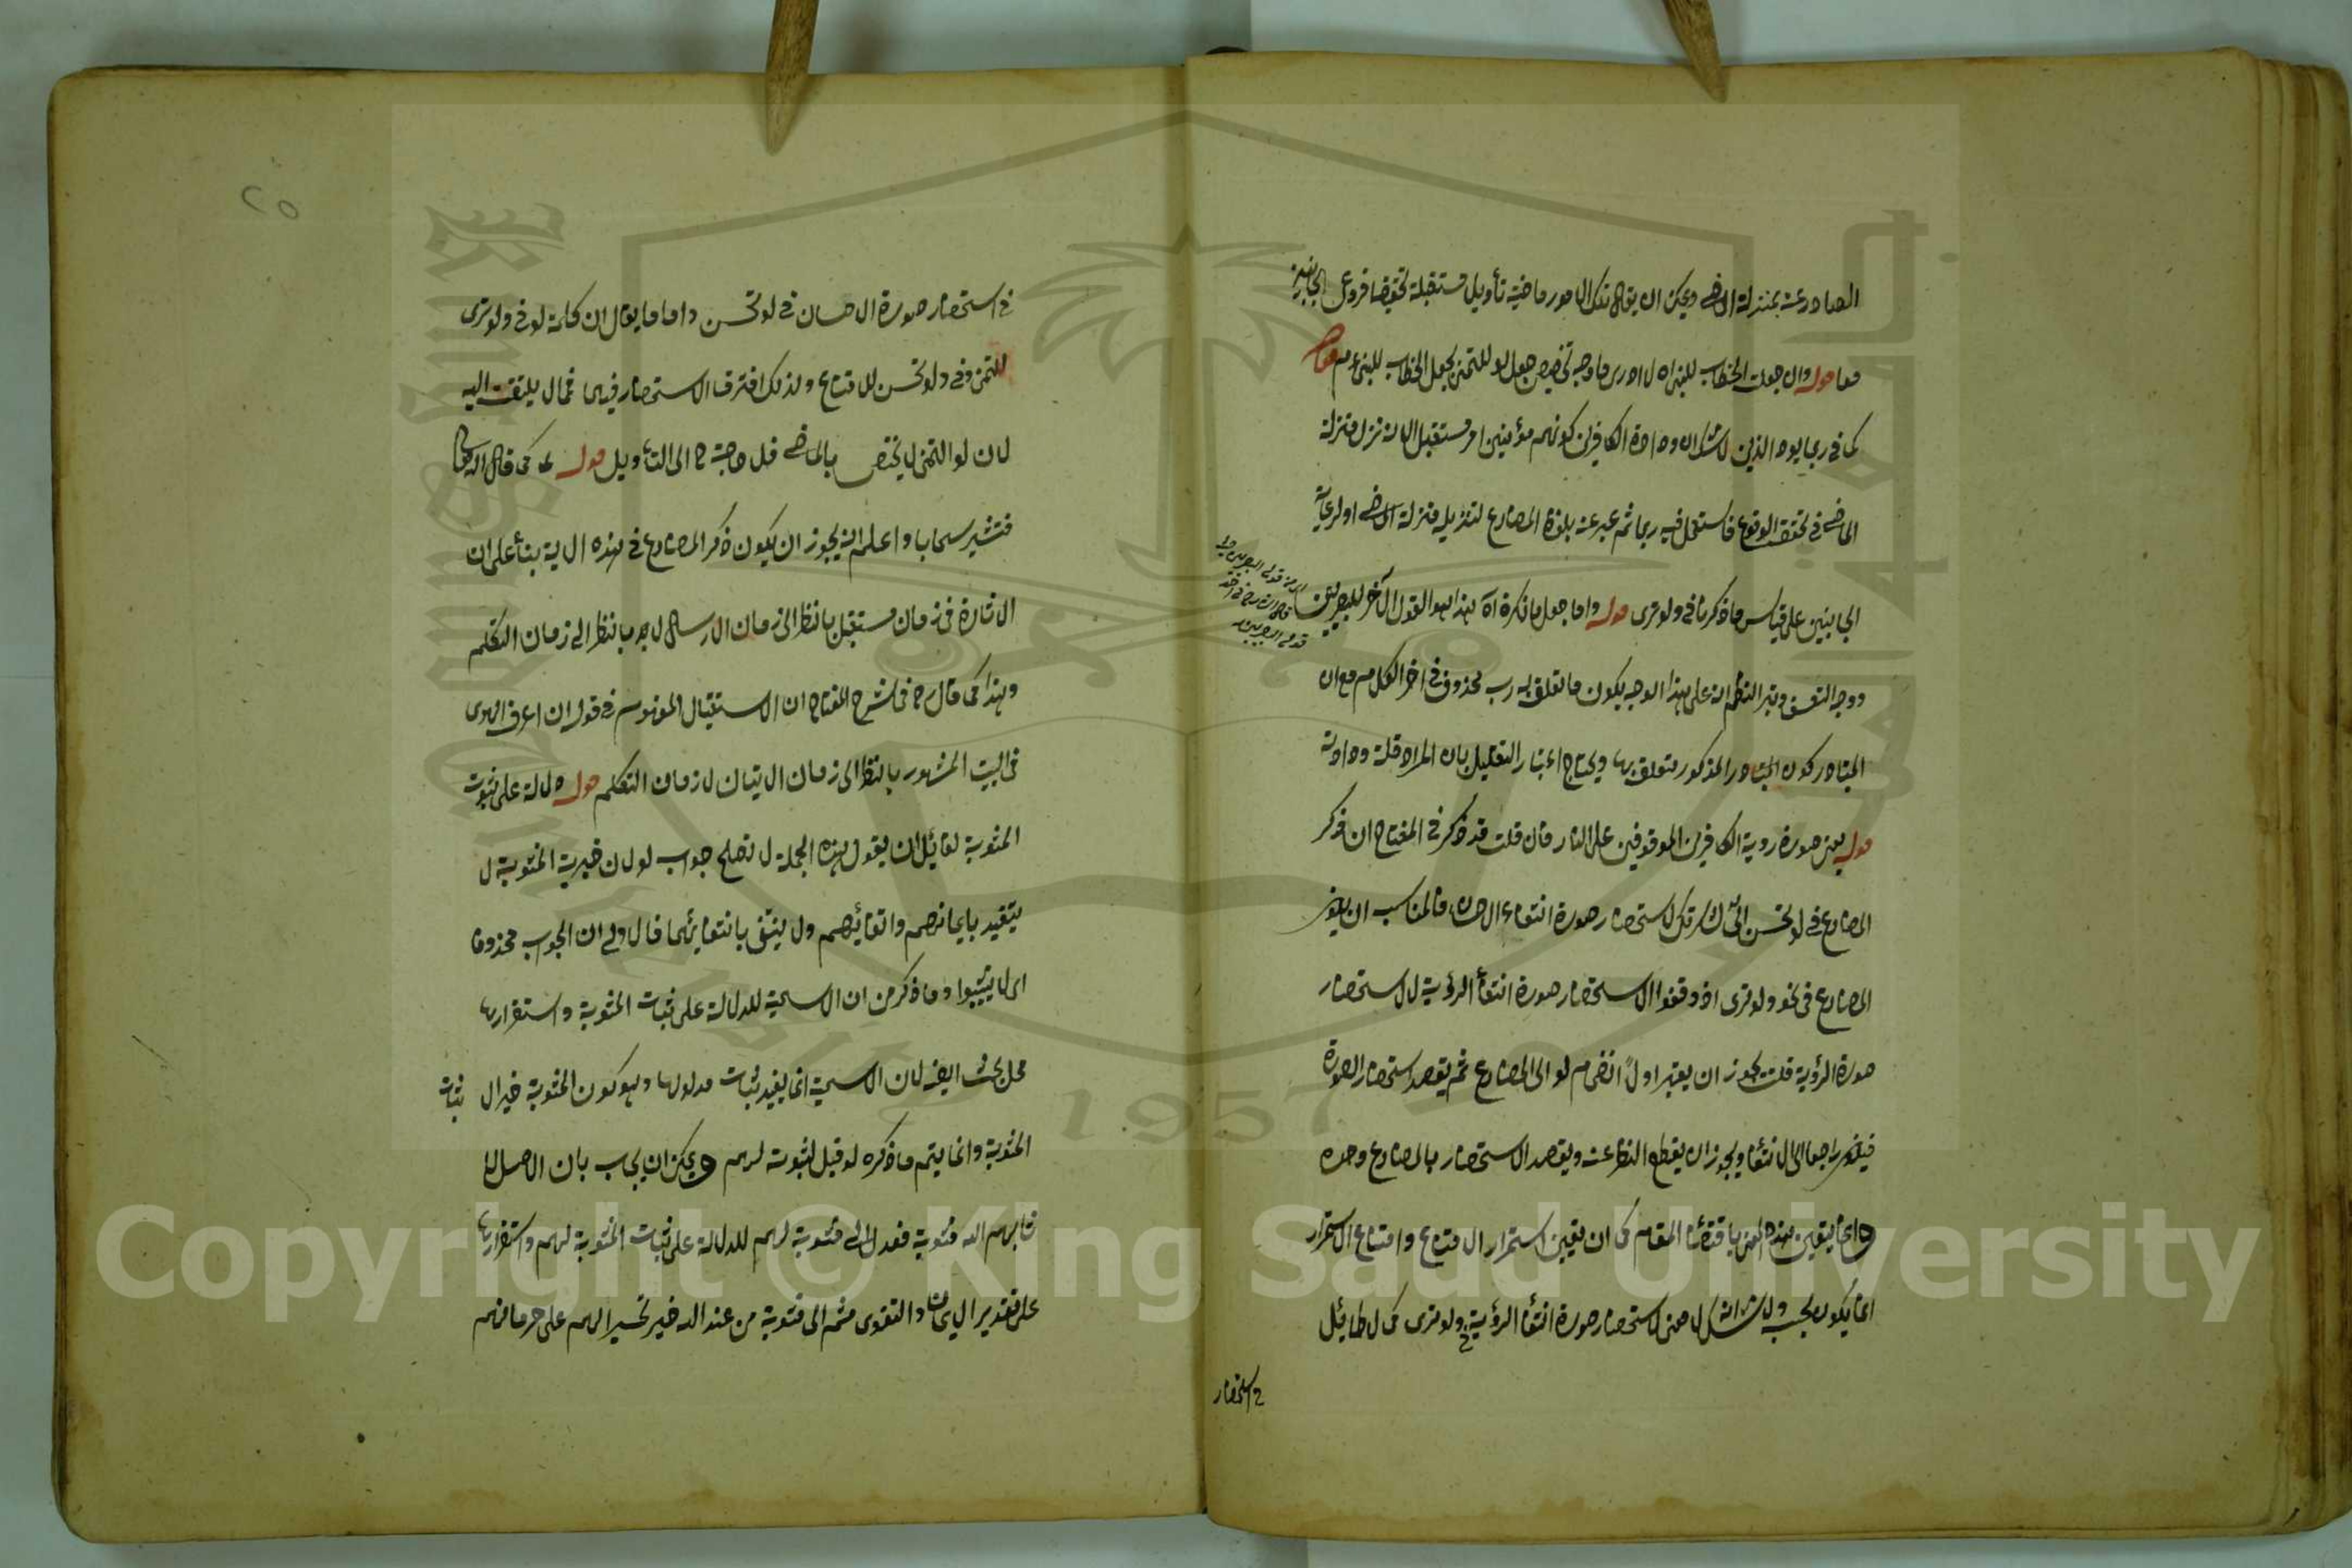 الصادر عنه بمنزلة الماضي ويمكن ان يقال تلك الامور ماضية تأويلا مستقبلة تحقيقا فروعي الجانبين
معا قوله وان جعلت الخطاب للنبي اه لا ادري ما وجه تخصيص جعل لو للتمني بجعل الخطاب للنبي عم
كما في ربما يود الذين لا شك ان ودادة الكافرين كونهم مؤمنين امر مستقبل الا انه نزل منزلة
الماضي في تحقق الوقوع فاستعمل فيه ربما ثم عبر عنه بلفظ المضارع لتنزيله منزلة الماضي او لرعاية
الجانبين على قياس ما ذكرنا في ولو ترى قوله واما جعل ما نكرة اه هذا هو القول الآخر للبصريين
ووجه التعسف وبتر النظم انه على هذا الوجه يكون ما تعلق به رب محذوف في اخر الكلام مع ان
المتبادر كون المذكور متعلق بها ويحتاج اعتبار التقليل بان المراد قلة ودادته
قوله يعني صورة رؤية الكافرين الموقوفين على النار فان قلت قد ذكر في المفتاح ان ذكر
المضارع في لو تحسن الي لشكرتك لاستحضار صورة انتفاء الاحسان فالمناسب ان يكون
المضارع في نحو ولو ترى اذ وقفوا لاستحضار صورة انتفاء الرؤية لا لاستحضار
صورة الرؤية قلت يجوز ان يعتبر اولا انضمام لو الى المضارع ثم يقصد استحضار الصورة
راجعا الى الانتفاء ويجوز ان يقطع النظر عنه ويقصد الاستحضار بالمضارع وحده
وانما يتعين هذه المعنى باقتضاء المقام كما ان تعيين استمرار الامتناع وامتناع الاستمرار
انما يكون بحسبه ولا شك ان لا معنى لاستحضار صورة انتفاء الرؤية في ولو ترى كما لا طائل
في استحضار
٢٥
في استحضار صورة الاحسان في لو تحسن واما ما يقال ان كلمة لو في ولو ترى
للتمني وفي ولو تحسن للامتناع ولذلك افترق الاستحضار فيهما فمما لا يلتفت اليه
لان لو التمني لا يختص بالماضي فلا حاجة ح الى التأويل قوله كما قال الله تعالى
فتثير سحابا واعلم انه يجوز ان يكون ذكر المضارع في هذه الاية بناء على ان
الاثارة في زمان مستقبل بالنظر الى زمان الارسال لا بالنظر الى زمان التكلم
وهذا كما قال رح في شرح المفتاح ان الاستقبال المفهوم في قوله ان اعرف الهوى
في البيت المشهور بالنظر الى زمان الاتيان لا زمان التكلم قوله دلالة على ثبوت
المثوبة لقائل ان يقول هذه الجملة لا تصلح جواب لو لان خيرية المثوبة لا
يتقيد بايمانهم واتقائهم ولا ينتفي بانتفائهما فالاولى ان الجواب محذوفا
اي لا ثيبوا وما ذكر من ان الاسمية للدلالة على ثبات المثوبة واستقرارها
محل بحث ايضا لان الاسمية انما يفيد ثبات مدلولها وهو كون المثوبة خيرا لا ثبات
المثوبة وانما يتم ما ذكره لو قيل لمثوبة لهم ويمكن ان يجاب بان الاصل
لاثابهم الله مثوبة فعدل الى مثوبة لهم للدلالة على ثبات المثوبة لهم واستقرارها
على تقدير الايمان والتقوى ثم الى مثوبة من عند الله خير تحسيرا لهم على حرمانهم